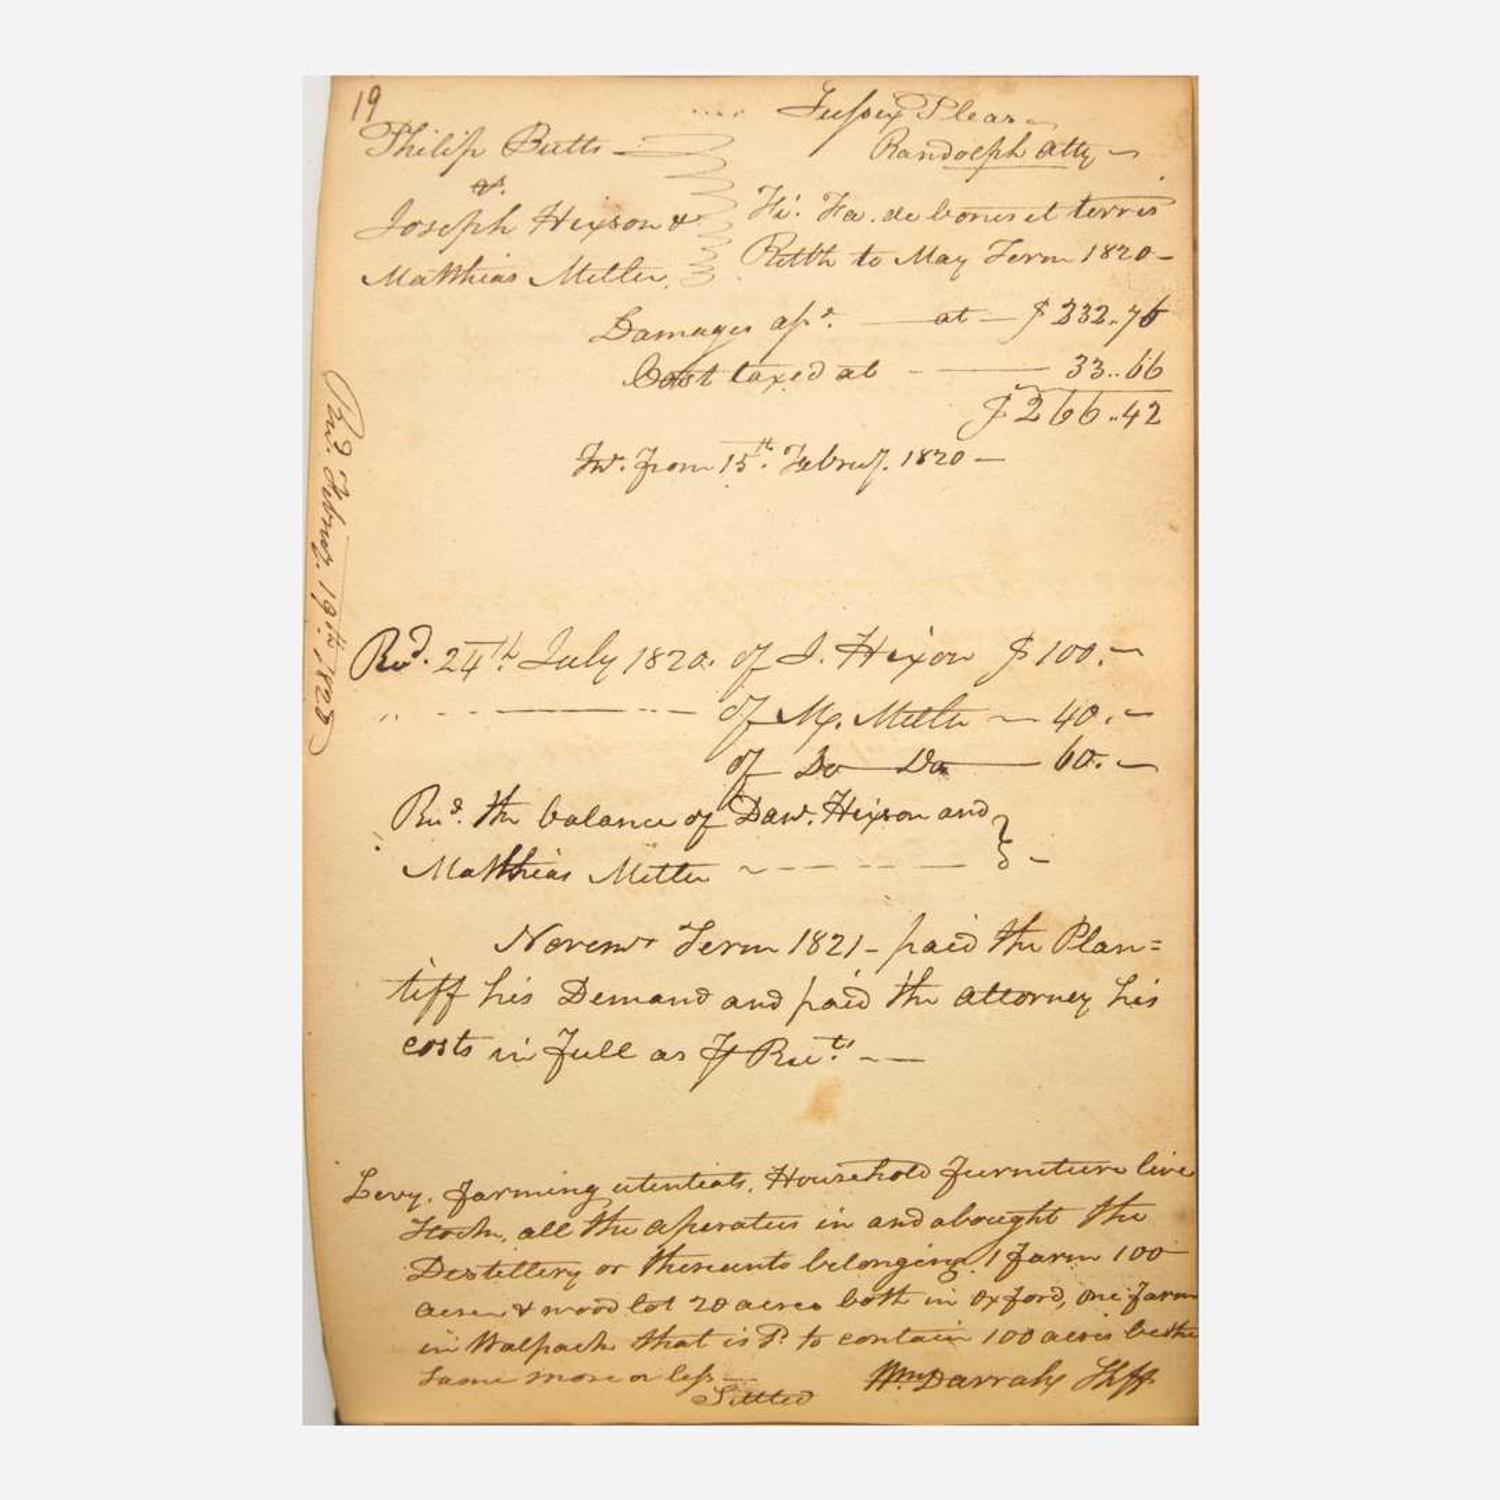 19
Sussex Pleas
Philip Butts
Randolph Atty
vs.
Joseph Hixson &
Fi. Fa. de bonis et terris
Matthias Mettler
Rettble to May Term 1820
Damages asd. at $232..76
Cost taxed at 33..66
$266..42
Int. from 15th. Februy. 1820
Recd. Febuy. 19th. 1820
Recd. 24th. July 1820. of J. Hixon $100.
of M. Mettler 40.
of Do Do 60.
Recd. the balance of Danl. Hixson and
Matthias Mettler
Novemr Term 1821 - paid the Plan=
tiff his Demand and paid the attorney his
costs in full as pr Rect.
Levy. farming utentials, Household furniture live
Stock, all the aperatus in and abought the
Destillery or thereunto belonging. 1 farm 100
acres & wood lot 20 acres both in Oxford, one farm
in Walpack that is sd. to contain 100 acres be the
same more or less
Settled
Wm Darrah Shff